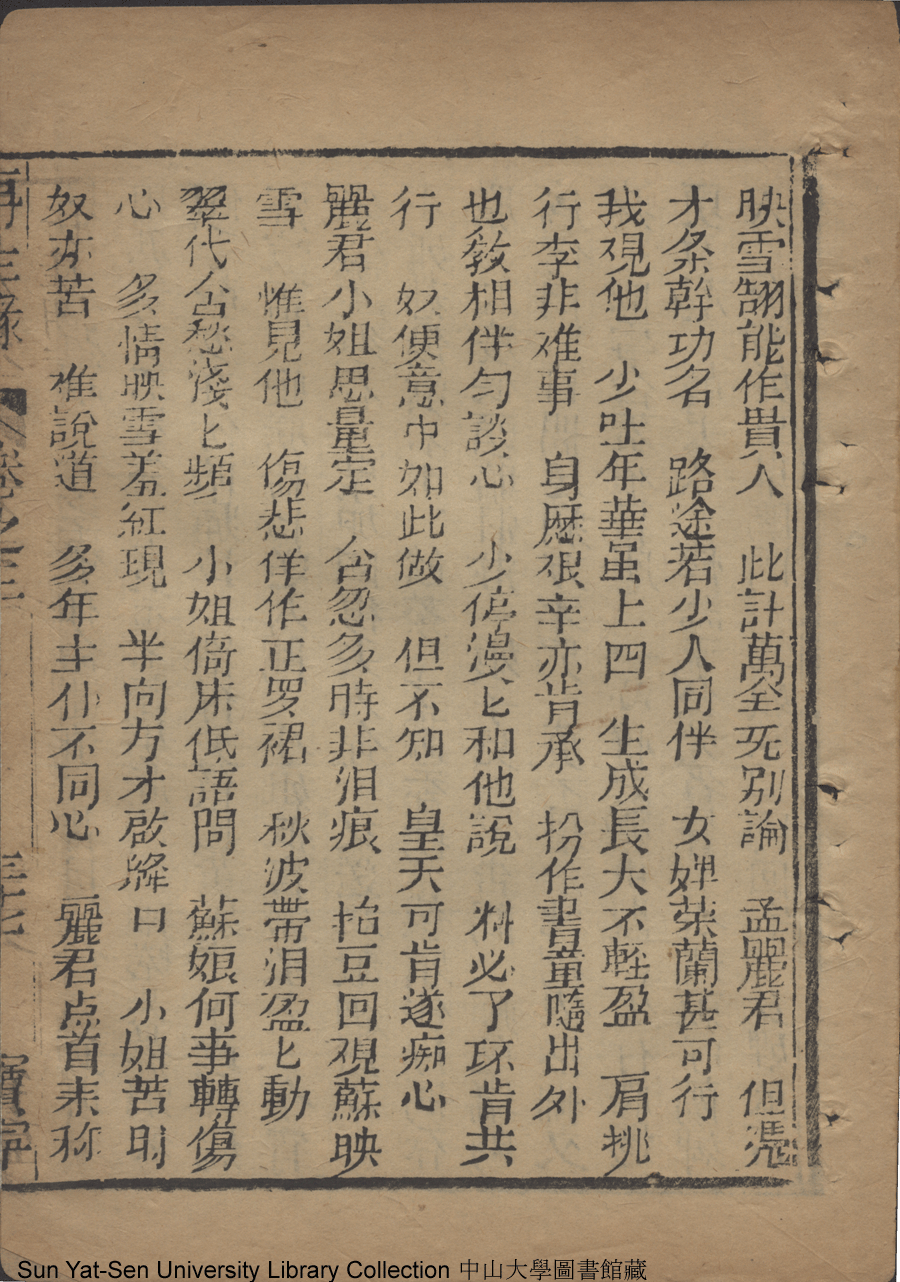 映雪才能作貴人　此計萬全死別論　孟麗君　但憑
才条幹功名　路途若少人同伴　女婢荣蘭甚可行
我覌他　少吐年華虽上四　生成長大不輕盈　肩挑
行李非难事　身歷艰辛亦肯承　扮作書童隨出外
也教相伴勻談心　少停漫匕和他說　料必了环肯共
行　奴便意中如此做　但不知　皇天可肯遂痴心
麗君小姐思量定　含忍多時非泪痕　抬豆回覌蘇映
雪　惟見他　傷悲佯作正罗裙　秋波带泪盈匕動
翠代含愁淺匕頻　小姐倚床低語問　蘇娘何事轉傷
心　多情映雪羞紅現　半向方才啟絳口　小姐苦明
奴亦苦　惟說道　多年主仆不同心　麗君点首来称
再生緣　卷之三　三十七　寶寧
Sun Yat-Sen University Library Collection 中山大學圖書館藏